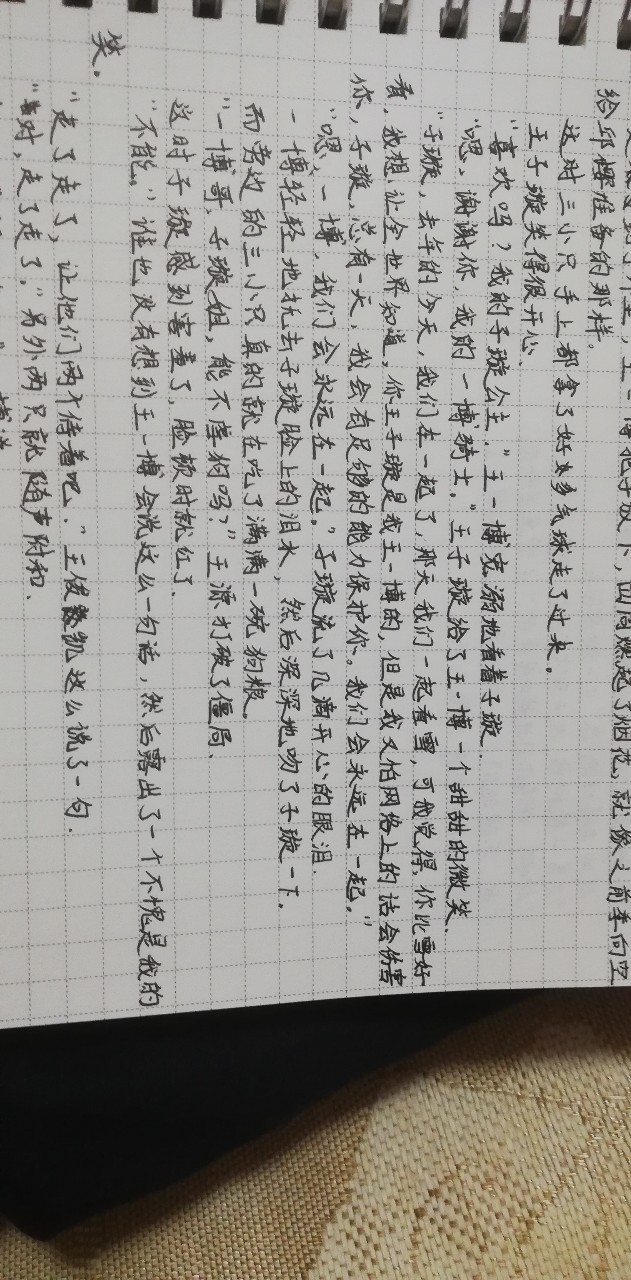 王一博把手放下,四周燃起了烟花,就像之前李向空
给邱樱准备的那样。
这时三小只手上都拿了好多气球走了过来。
王子璇笑得很开心.
“喜欢吗?我的子璇公主,”王一博宠溺地看着子璇.
“嗯,谢谢你,我的一博骑士。”王子璇给了王一博一个甜甜的微笑.
“子璇,去年的今天,我们在一起了,那天我们一起看雪,可我觉得,你比雪好
看,我想让全世界知道,你王子璇是我王一博的,但是我又怕网络上的话会伤害
你,子璇,总有一天,我会有足够的能力保护你。我们会永远在一起。”
“嗯,一博,我们会永远在一起。”子璇流了几滴开心的眼泪.
一博轻轻地抚去子璇脸上的泪水,然后深深地吻了子璇一下。
而旁边的三小只真的就在吃了满满一碗狗粮。
“一博哥,子璇姐,能不虐狗吗?”王源打破了僵局、
这时子璇感到害羞了,脸顿时就红了.
“不能。”谁也没有想到王一博会说这么一句话,然后露出了一个不愧是我的
笑。
“走了走了,让他们两个待着吧.”王俊凯这么说了一句.
“对,走了走了.”另外两只就随声附和、